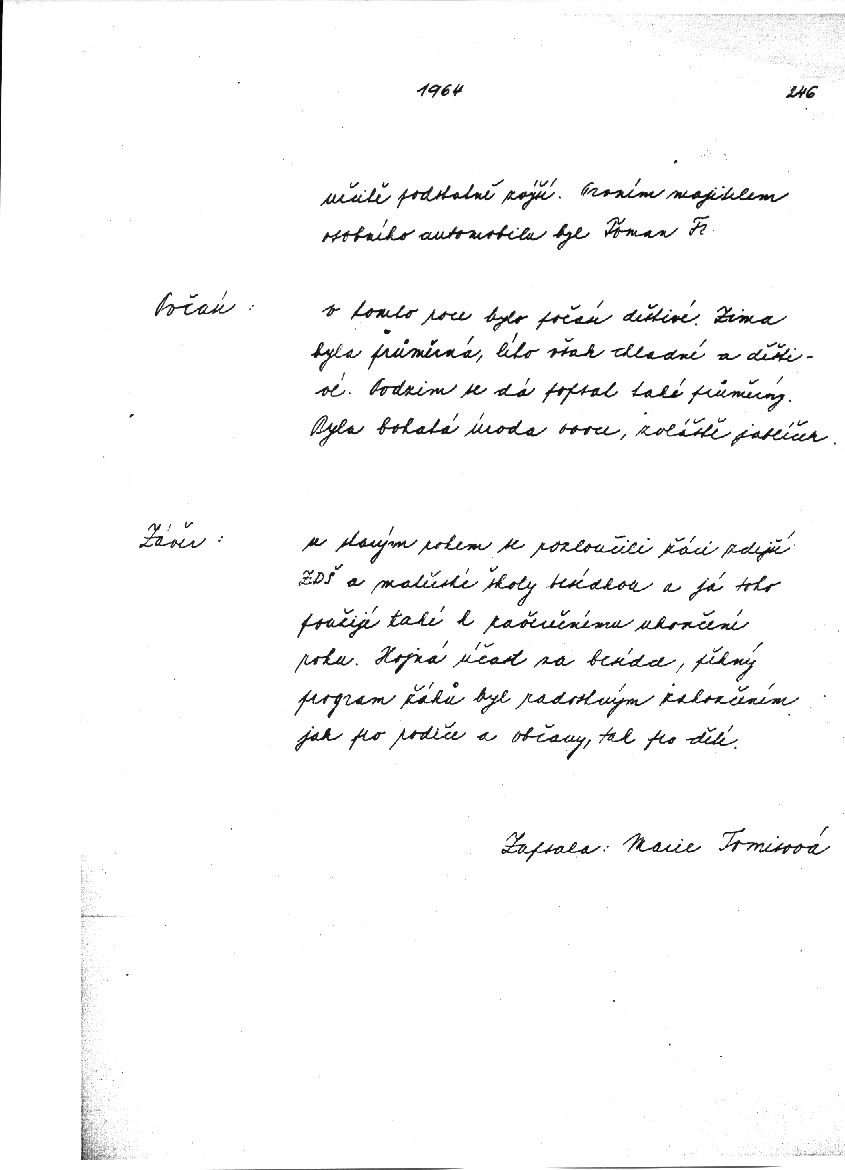 1964 246
určitě podstatně zvýší. Prvním majitelem
osobního automobilu byl Toman Fr.
Počasí : v tomto roce bylo počasí deštivé. Zima
byla průměrná, léto však chladné a dešti-
vé. Podzim se dá popsat také průměrný.
Byla bohatá úroda ovoce, zvláště jablíček.
Závěr : se starým rokem se rozloučili žáci zdejší
ZDŠ a mateřské školy besídkou a já toho
použiji také k závěrečnému ukončení
roku. Hojná účast na besídce, pěkný
program žáků byl radostným zakončením
jak pro rodiče a občany, tak pro děti.
Zapsala: Marie Tomisová